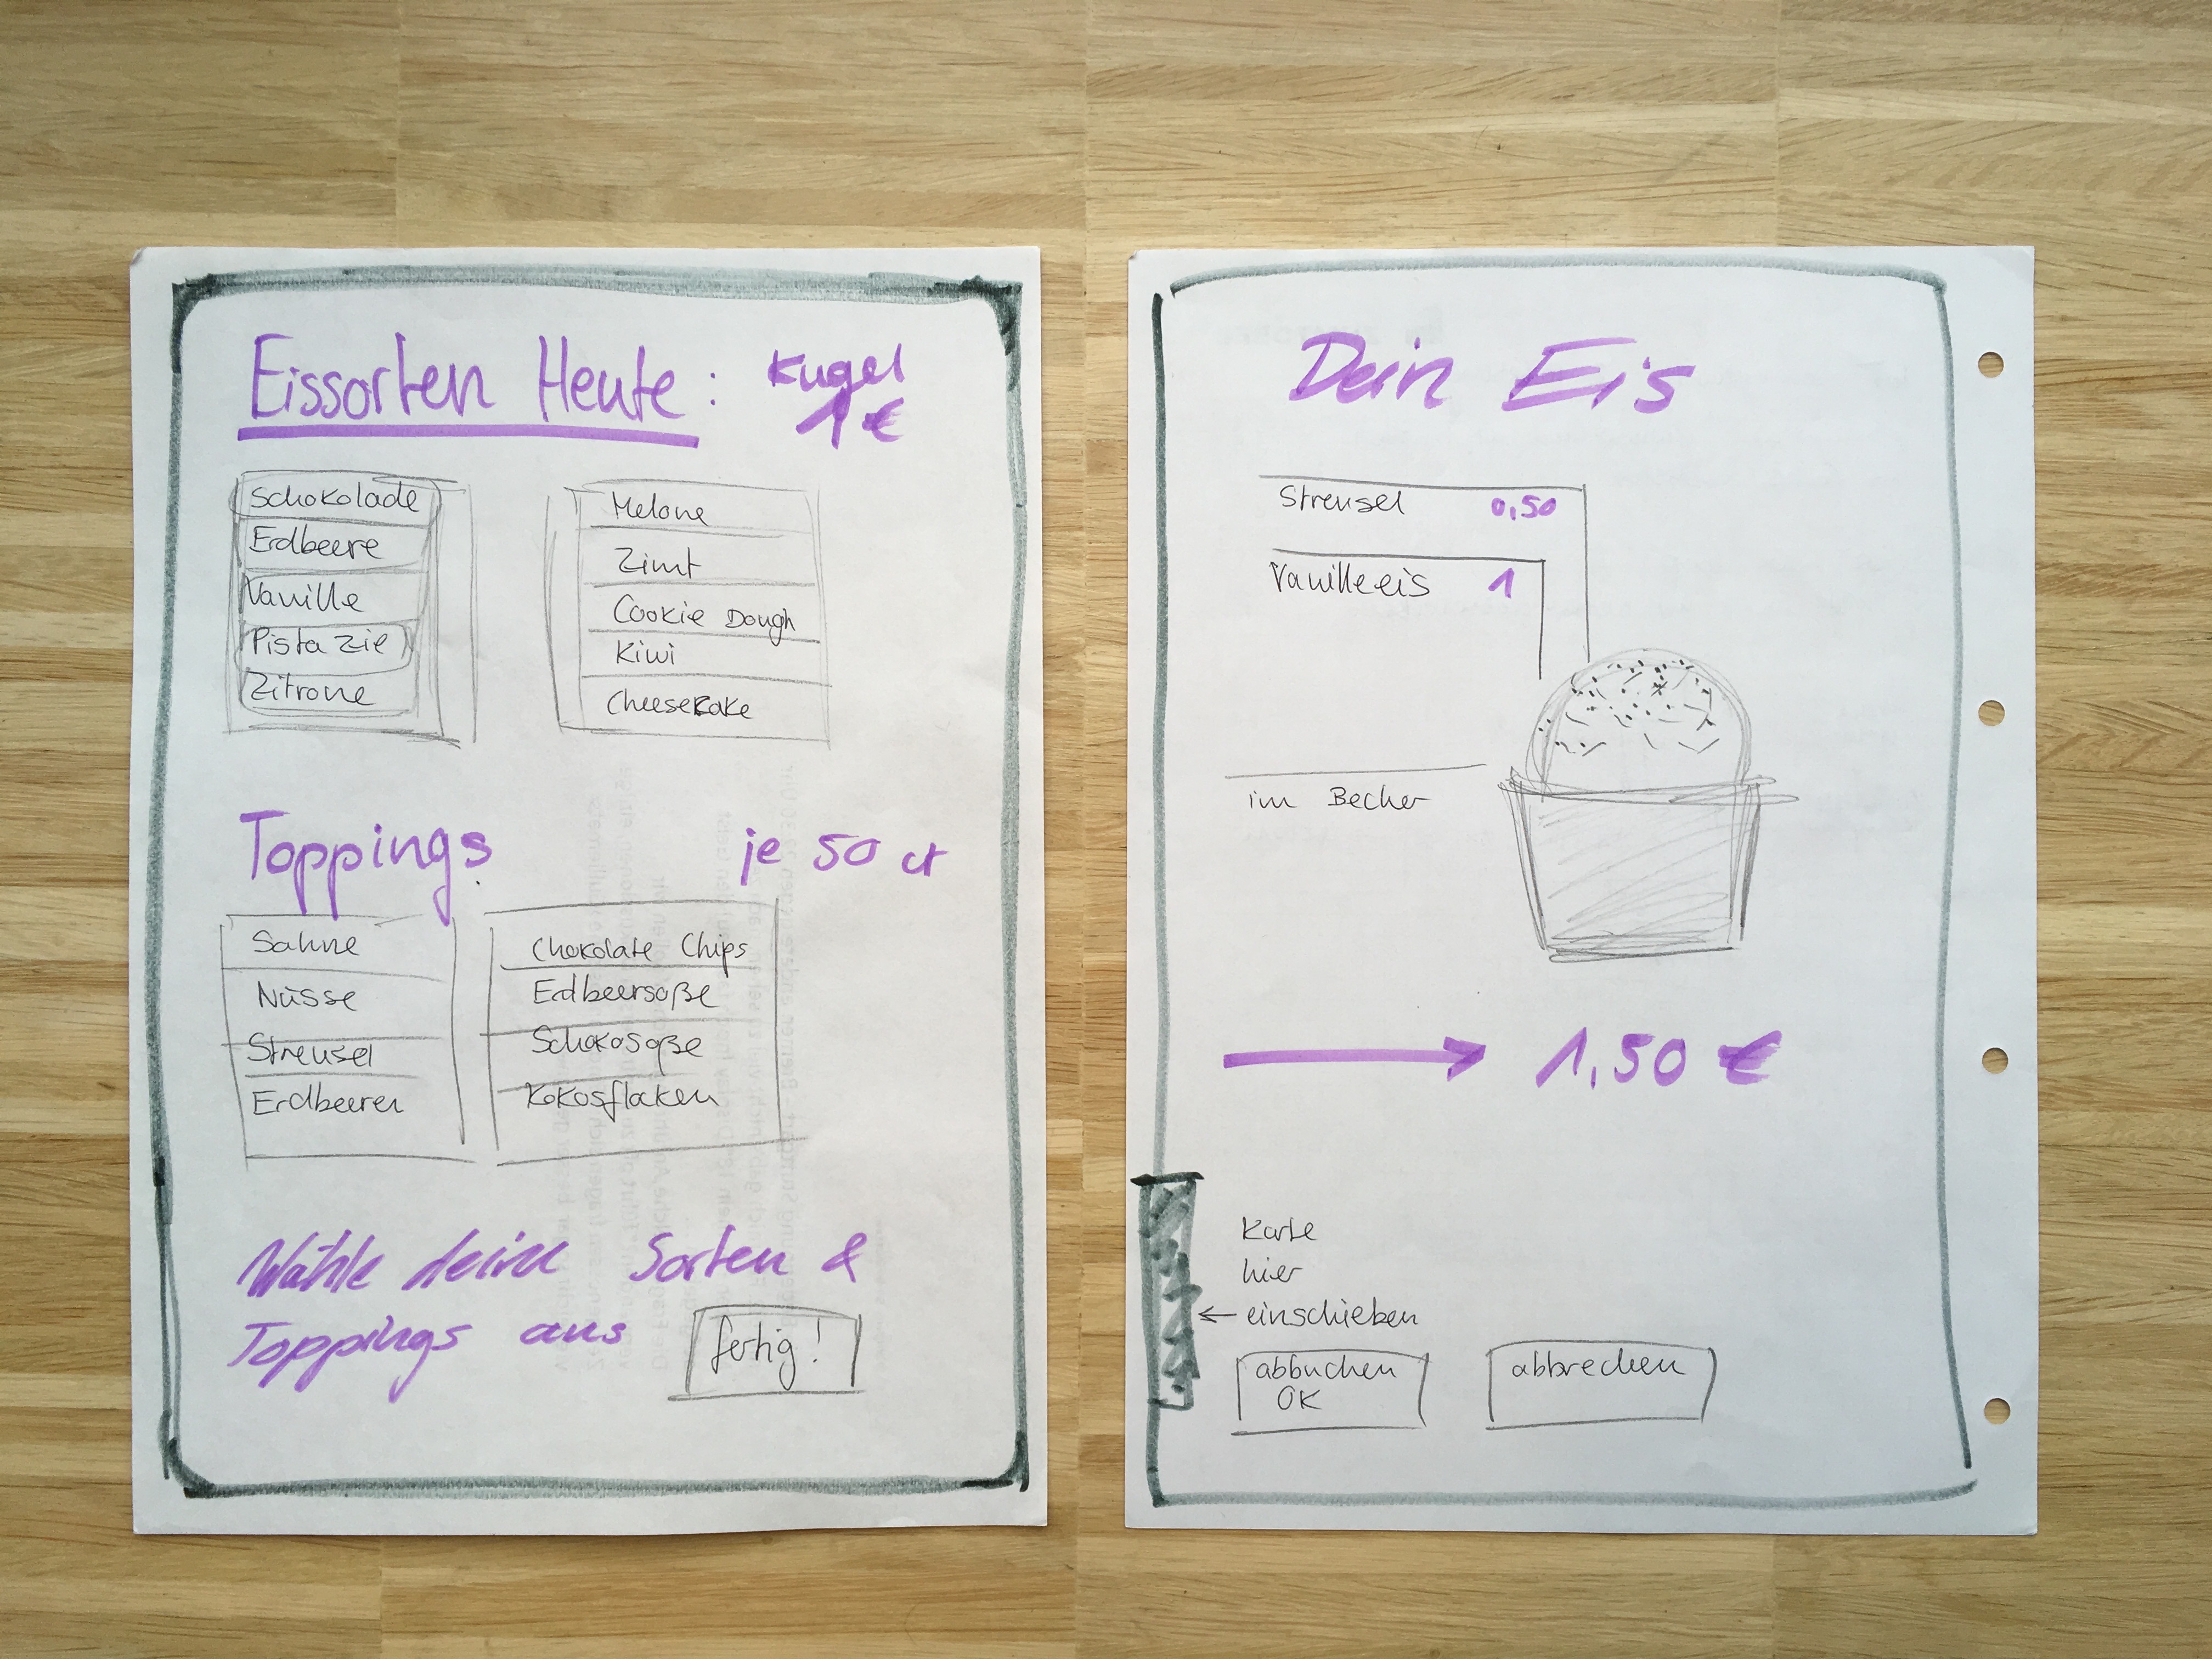 Eissorten Heute: Kugel
1 €
Schokolade
Erdbeere
Vanille
Pistazie
Zitrone
Melone
Zimt
Cookie Dough
Kiwi
Cheesecake
Toppings je 50 ct
Sahne
Nüsse
Streusel
Erdbeeren
Chokolate Chips
Erdbeersoße
Schokosoße
Kokosflaken
Wähle deine Sorten &
Toppings aus
fertig!
Dein Eis
Streusel 0,50
Vanilleeis 1
im Becher
→ 1,50 €
Karte
hier
← einschieben
abbuchen
OK
abbrechen